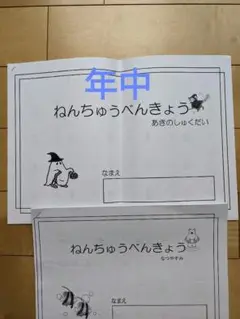 年中
ねんちゅうべんきょう
あきのしゅくだい
なまえ
ねんちゅうべんきょう
なつやすみ
なまえ